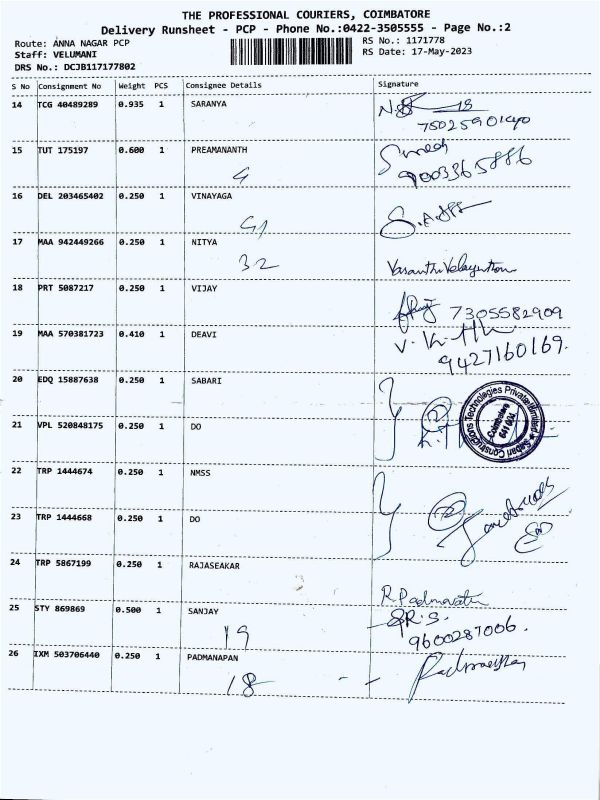 THE PROFESSIONAL COURIERS, COIMBATORE
Delivery Runsheet - PCP - Phone No.:0422-3505555 - Page No.:2
Route: ANNA NAGAR PCP RS No.: 1171778
Staff: VELUMANI RS Date: 17-May-2023
DRS No.: DCJB117177802
S No Consignment No Weight PCS Consignee Details Signature
14 TCG 40489289 0.935 1 SARANYA
15 TUT 175197 0.600 1 PREAMANANTH
9003365886
16 DEL 203465402 0.250 1 VINAYAGA
17 MAA 942449266 0.250 1 NITYA
32 Vasanthi Velayutham
18 PRT 5087217 0.250 1 VIJAY
7305582909
19 MAA 570381723 0.410 1 DEAVI
9427160169.
20 EDQ 15887638 0.250 1 SABARI
Sabari Constructions Technologies Private Limited
Coimbatore
641 004
21 VPL 520848175 0.250 1 DO
22 TRP 1444674 0.250 1 NMSS
23 TRP 1444668 0.250 1 DO
24 TRP 5867199 0.250 1 RAJASEAKAR
R Padmavathi
25 STY 869869 0.500 1 SANJAY
R.S.
19 9600287006.
26 IXM 503706440 0.250 1 PADMANAPAN
18